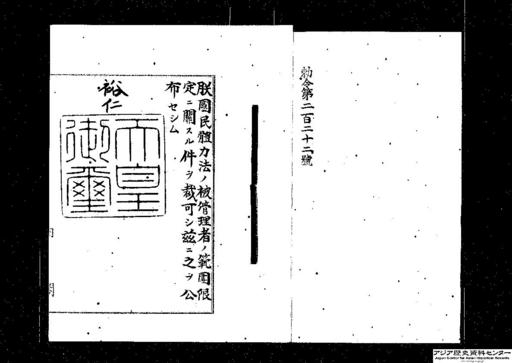 勅令第二百二十二號
朕國民體力法ノ被管理者ノ範圍限
定ニ關スル件ヲ裁可シ茲ニ之ヲ公
布セシム
裕仁
天皇
御璽
アジア歴史資料センター
Japan Center for Asian Historical Records